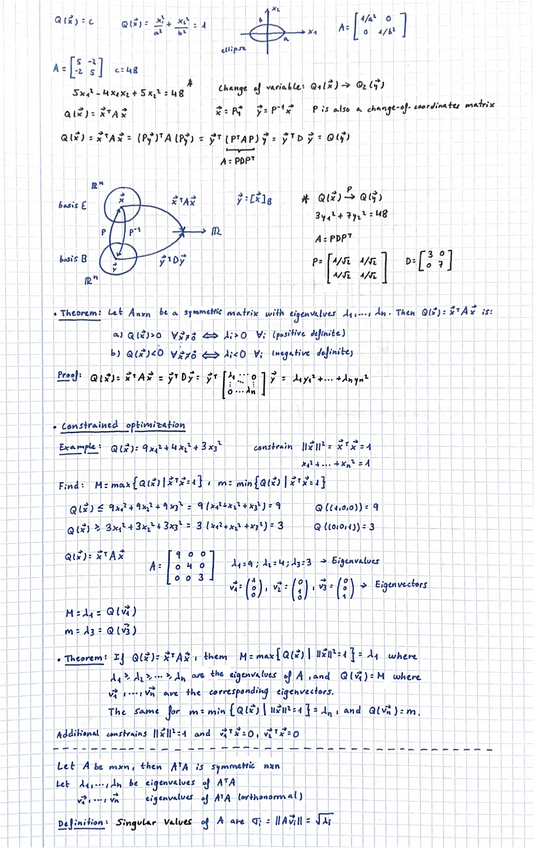 Q(x⃗) = c   Q(x⃗) = x₁²/a² + x₂²/b² = 1   ellipse   b   a   x₁   x₂   A = [1/a² 0; 0 1/b²]
A = [5 -2; -2 5]   c=48
5x₁² - 4x₁x₂ + 5x₂² = 48 *   Change of variable: Q₁(x⃗) → Q₂(y⃗)
Q(x⃗) = x⃗ᵀAx⃗   x⃗ = Py⃗   y⃗ = P⁻¹x⃗   P is also a change-of-coordinates matrix
Q(x⃗) = x⃗ᵀAx⃗ = (Py⃗)ᵀA(Py⃗) = y⃗ᵀ(PᵀAP)y⃗ = y⃗ᵀDy⃗ = Q(y⃗)
A = PDPᵀ
ℝⁿ
basis E   x⃗   x⃗ᵀAx⃗   y⃗ = [x⃗]_B
P   P⁻¹   ℝ
basis B   y⃗   y⃗ᵀDy⃗
ℝⁿ
* Q(x⃗) →P Q(y⃗)
3y₁² + 7y₂² = 48
A = PDPᵀ
P = [1/√2 1/√2; 1/√2 1/√2]   D = [3 0; 0 7]
• Theorem: Let Anxn be a symmetric matrix with eigenvalues λ₁,...,λn. Then Q(x⃗) = x⃗ᵀAx⃗ is:
a) Q(x⃗)>0 ∀x⃗≠0⃗ ⟺ λi>0 ∀i (positive definite)
b) Q(x⃗)<0 ∀x⃗≠0⃗ ⟺ λi<0 ∀i (negative definite)
Proof: Q(x⃗) = x⃗ᵀAx⃗ = y⃗ᵀDy⃗ = y⃗ᵀ [λ₁ ... 0; ⋮ ⋱ ⋮; 0 ... λn] y⃗ = λ₁y₁² + ... + λnyn²
• Constrained optimization
Example: Q(x⃗) = 9x₁² + 4x₂² + 3x₃²   constrain ||x⃗||² = x⃗ᵀx⃗ = 1
x₁² + ... + xn² = 1
Find: M = max{Q(x⃗) | x⃗ᵀx⃗ = 1}, m = min{Q(x⃗) | x⃗ᵀx⃗ = 1}
Q(x⃗) ≤ 9x₁² + 9x₂² + 9x₃² = 9(x₁²+x₂²+x₃²) = 9   Q((1,0,0)) = 9
Q(x⃗) ≥ 3x₁² + 3x₂² + 3x₃² = 3(x₁²+x₂²+x₃²) = 3   Q((0,0,1)) = 3
Q(x⃗) = x⃗ᵀAx⃗   A = [9 0 0; 0 4 0; 0 0 3]   λ₁=9; λ₂=4; λ₃=3 → Eigenvalues
v₁⃗ = (1 0 0), v₂⃗ = (0 1 0), v₃⃗ = (0 0 1) → Eigenvectors
M = λ₁ = Q(v₁⃗)
m = λ₃ = Q(v₃⃗)
• Theorem: If Q(x⃗) = x⃗ᵀAx⃗, them M = max{Q(x⃗) | ||x⃗||² = 1} = λ₁ where
λ₁ ≥ λ₂ ≥ ... ≥ λn are the eigenvalues of A, and Q(v₁⃗) = M where
v₁⃗,...,vn⃗ are the corresponding eigenvectors.
The same for m = min{Q(x⃗) | ||x⃗||² = 1} = λn, and Q(vn⃗) = m.
Additional constrains ||x⃗||² = 1 and v₁⃗ᵀx⃗ = 0, v₂⃗ᵀx⃗ = 0
Let A be mxn, then AᵀA is symmetric nxn
Let λ₁,...,λn be eigenvalues of AᵀA
v₁⃗,...,vn⃗ eigenvalues of AᵀA (orthonormal)
Definition: Singular values of A are σi = ||Avi⃗|| = √λi